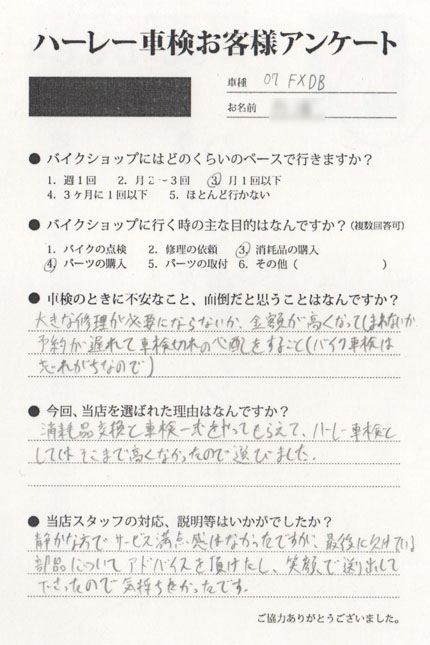 ハーレー車検お客様アンケート
車種 07 FXDB
お名前
● バイクショップにはどのくらいのペースで行きますか？
1. 週1回 2. 月2~3回 3. 月1回以下
4. 3ヶ月に1回以下 5. ほとんど行かない
● バイクショップに行く時の主な目的はなんですか？(複数回答可)
1. バイクの点検 2. 修理の依頼 3. 消耗品の購入
4. パーツの購入 5. パーツの取付 6. その他 ( )
● 車検のときに不安なこと、面倒だと思うことはなんですか？
大きな修理が必要にならないか、金額が高くなってしまわないか
予約が遅れて車検切れの心配をすること(バイク車検は
忘れがちなので)
● 今回、当店を選ばれた理由はなんですか？
消耗品交換と車検一式をやってもらえて、ハーレー車検と
してはそこまで高くなかったので選びました.
● 当店スタッフの対応、説明等はいかがでしたか？
静かな方でサービス満点感はなかったですが、最後に欠けている
部品について アドバイスを頂けたし、笑顔で送り出して
下さったので気持ちよかったです.
ご協力ありがとうございました。